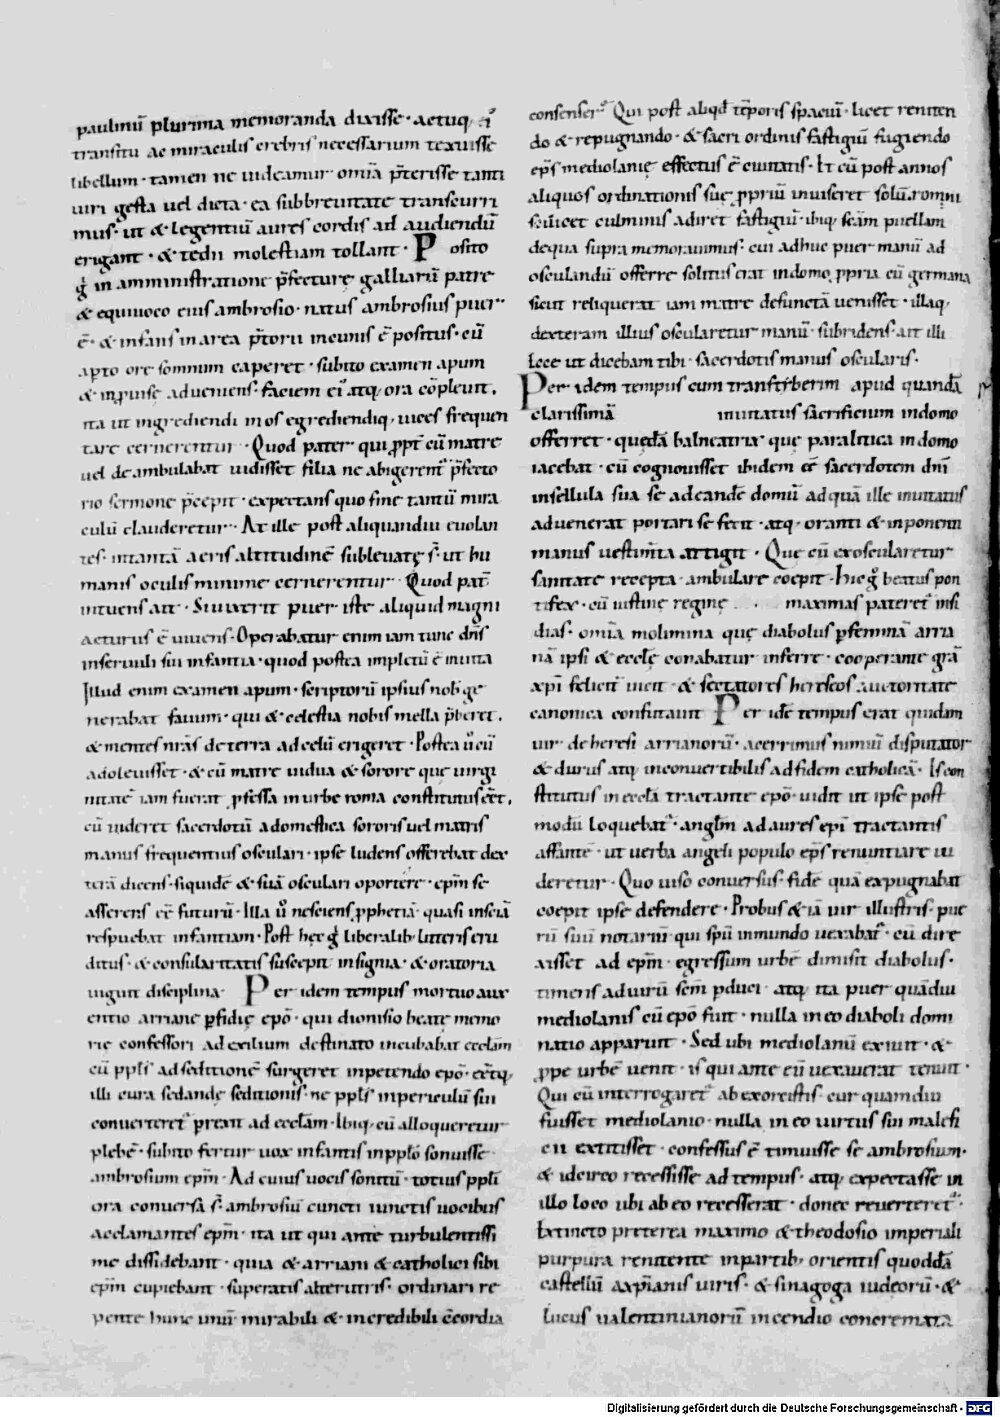 paulinū plurima memoranda dixisse · de tuq;
transitu ac miraculis crebris necessarium texuisse
libellum · tamen ne uideamur om̄ia p̄terisse tanti
uiri gesta uel dicta · ea subbreuitate transcurri
mus · ut & legentiū aures cordis ad audiendū
erigant · & tedii molestiam tollant · Posito
g̊ in amministratione p̄fecturę galliarū patre
& equiuoco eius ambrosio · natus ambrosius puer
ē · & infans in area p̄torii in cunis ē positus · cū
apto ore somnum caperet · subito examen apum
& inprouise adueniens · faciem ei⁹ atq; ora cōpleuit,
ita ut ingrediendi in os egrediendiq; uices frequen
tare cernerentur · Quod pater qui ppt̄ eū matre
uel deambulabat uidisset filia ne abigerent̄ p̄fecto
rio sermone p̄cepit · expectans quo fine tantū mira
culū clauderetur · At ille post aliquandiu euolan
tes · in tantā aeris altitudinē subleuatę s̄ · ut hu
manis oculis minime cernerentur · Quod pat̄
intuens ait · Si uixerit puer iste aliquid magni
acturus ē uiuens · Operabatur enim iam tunc dn̄s
in seruuli sui infantia · quod postea impletū ē in uita
Illud enim examen apum · scriptorū ipsius nob̄ ge
nerabat fauum · qui & celestia nobis mella p̄beret,
& mentes nr̄as de terra ad celū erigeret · Postea ů cū
adoleuisset · & cū matre uidua & sorore que uirgi
nitatē iam fuerat pfessa in urbe roma constitutus eēt,
cū uideret sacerdotū a domestica sororis uel matris
manus frequentius osculari · ipse ludens offerebat dex
terā dicens · siquidē & suā osculari oportere · ep̄m se
asserens eē futurū · Illa ů nesciens pphetiā · quasi insciā
respuebat infantiam · Post hęc g̊ liberalib; litteris eru
ditus · & consularitatis suscepit insignia · & oratoria
uiguit disciplina · Per idem tempus mortuo aux
entio arriane pfidię ep̄o · qui dionisio beate memo
rię confessori ad exilium destinato incubabat ecclam̄
cū ppl̄s ad seditionē surgeret in petendo ep̄o · eētq;
illi cura sedandę seditionis · ne ppl̄s in periculū sui
conuerteret̄ prexit ad ecclam̄ · Ibiq; cū alloqueretur
plebē · subito fertur uox infantis in ppl̄o sonuisse
ambrosium ep̄m · Ad cuius uocis sonitū · totius ppl̄i
ora conuersa s̄ · ambrosiū cuncti iunctis uocibus
acclamantes ep̄m · ita ut qui ante turbulentissi
me dissidebant · quia & arriani & catholici sibi
ep̄m cupiebant · superatis alterutris · ordinari re
pente hunc unū mirabili & incredibili ccordia
consenser̄ · Qui post aliqd̄ tēporis spaciū · licet reniten
do & repugnando · & sacri ordinis fastigiū fugiendo
ep̄s mediolanię effectus ē ciuitatis · Et cū post annos
aliquos ordinationis suę ppriū inuiseret solū · romani
scilicet culminis adiret fastigiū · ibiq; sc̄am puellam
de qua supra memorauimus · cui adhuc puer manū ad
osculandū offerre solitus erat in domo ppria cū germana
sicut reliquerat iam matre defunctā uenisset · illaq;
dexteram illius oscularetur manū · subridens · ait illi
Ecce ut dicebam tibi · sacerdotis manus oscularis ·
Per idem tempus cum transtiberim apud quandā
clarissimā inuitatus sacrificium in domo
offerret · quędā balneatria · quę paralitica in domo
iacebat · cū cognouisset ibidem eē sacerdotem dn̄i
in sellula sua se ad eandē domū ad quā ille inuitatus
aduenerat portari se fecit · atq; oranti & inponenti
manus uestim̄ta attigit · Que cū exoscularetur
sanitate recepta · ambulare coepit · Hic g̊ beatus pon
tifex · cū iustinę reginę maximas pateret̄ insi
dias · om̄ia molimina quę diabolus p feminā arria
nā ipsi & eccl̄ę conabatur inferre · cooperante gr̄a
xp̄i felicit̄ uicit · & sectatores hereseos auctoritate
canonica confutauit · Per idē tempus erat quidam
uir de heresi arrianorū · acerrimus nimiū disputator
& durus atq; inconuertibilis ad fidem catholicā · Is con
stitutus in eccl̄a tractante ep̄o · uidit ut ipse post
modū loquebat̄ · anglm̄ ad aures ep̄i tractantis
affantē · ut uerba angeli populo ep̄s renuntiare ui
deretur · Quo uiso conuersus · fidē quā expugnabat
coepit ipse defendere · Probus & iā uir illustris · pue
rū suū notariū qui spū inmundo uexabat̄ · cū dire
xisset ad ep̄m · egressum urbē dimisit diabolus ·
timens ad uirū sc̄m pduci · atq; ita puer quādiu
mediolanis cū ep̄o fuit · nulla in eo diaboli domi
natio apparuit · Sed ubi mediolanū exiuit · &
ppe urbē uenit · is qui ante eū uexauerat tenuit ·
Qui cū interrogaret̄ ab exorcistis · cur quamdiu
fuisset mediolanio · nulla in eo uirtus sui malefi
cii extitisset · confessus ē timuisse se ambrosium ·
& idcirco recessisse ad tempus · atq; expectasse in
illo loco ubi ab eo recesserat · donec reuerteret̄ ·
Extincto preterea maximo & theodosio imperiali
purpura renitente in partib; orientis quoddā
castellū a xp̄ianis uiris · & sinagoga iudeorū · &
lucus ualentinianorū incendio concremata